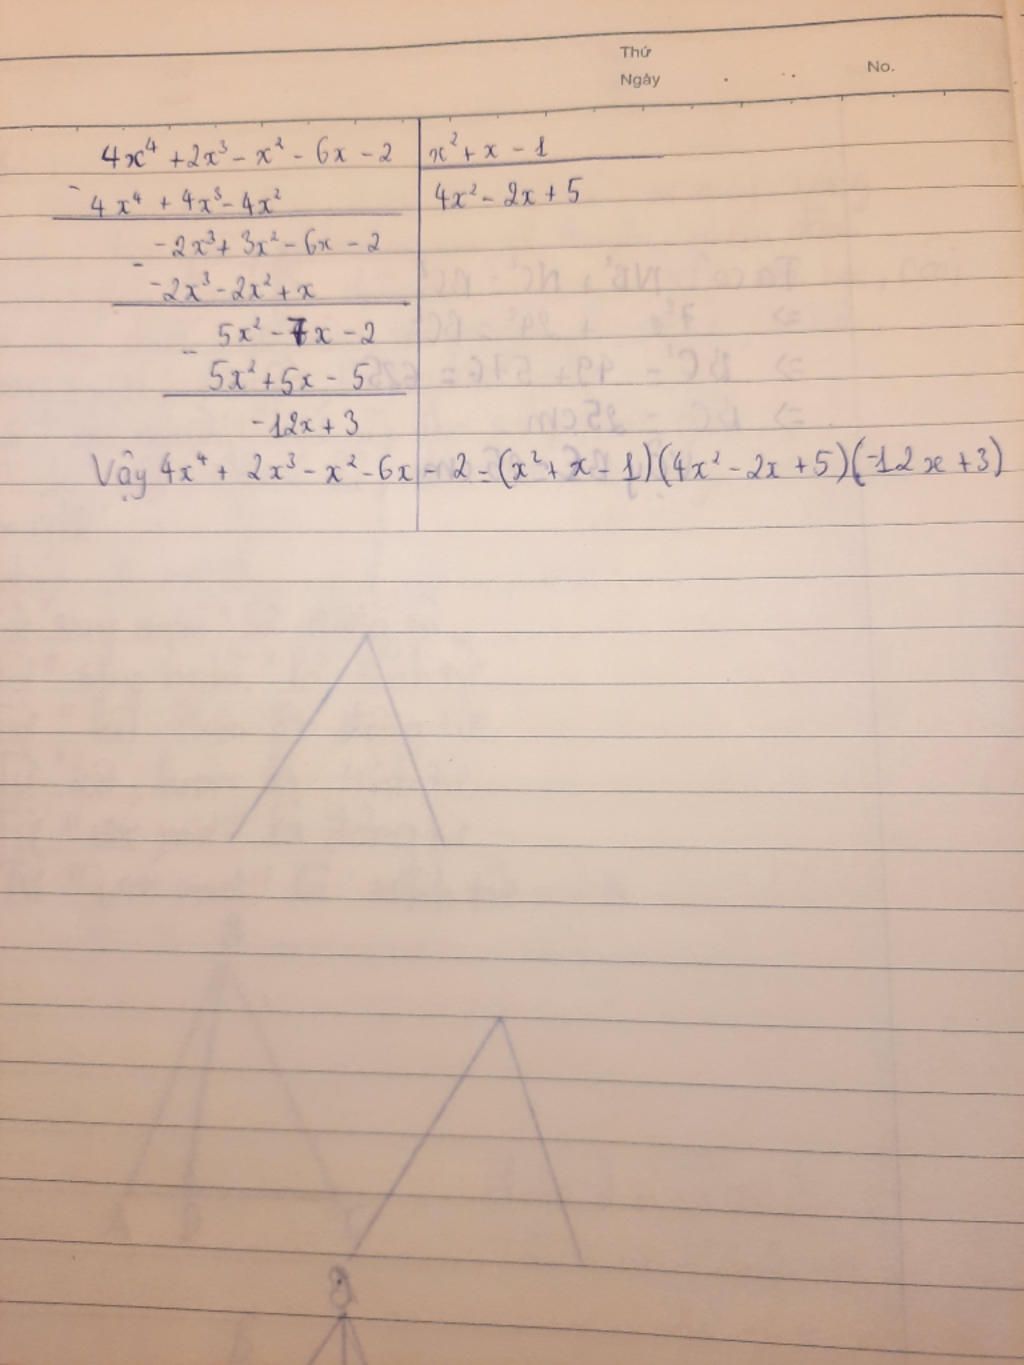 Thứ
Ngày . .. No.
4x⁴ + 2x³ - x² - 6x - 2 | x² + x - 1
- 4x⁴ + 4x³ - 4x² | 4x² - 2x + 5
-2x³ + 3x² - 6x - 2
- -2x³ - 2x² + x
5x² - 7x - 2
- 5x² + 5x - 5
-12x + 3
Vậy 4x⁴ + 2x³ - x² - 6x - 2 = (x² + x - 1)(4x² - 2x + 5)(-12x + 3)
B